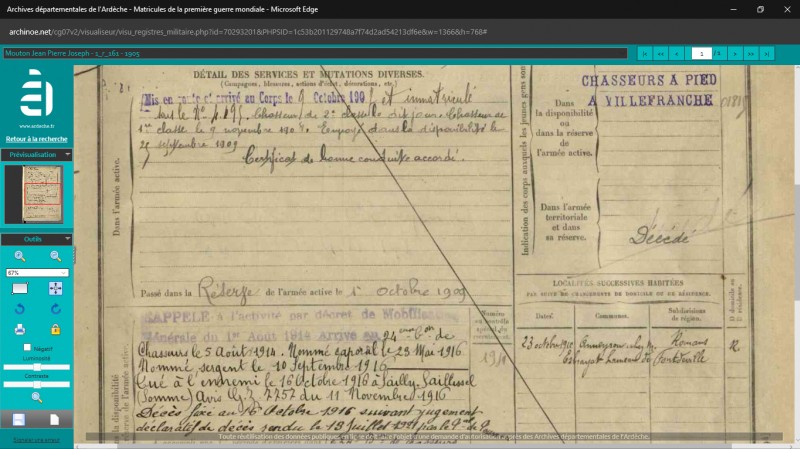 Archives départementales de l'Ardèche - Matricules de la première guerre mondiale - Microsoft Edge
archinoe.net/cg07v2/visualiseur/visu_registres_militaire.php?id=70293201&PHPSID=1c53b201129740a7f74d2ad54213df6e&w=1366&h=768#
Mouton Jean Pierre Joseph - 1_r_161 - 1905
1
/ 2
www.ardeche.fr
Retour à la recherche
Prévisualisation
Outils
67%
Négatif
Luminosité
Contraste
DÉTAIL DES SERVICES ET MUTATIONS DIVERSES.
(Campagnes, blessures, actions d'éclat, décorations, etc.)
Dans l'armée active.
Mis en route et arrivé au Corps le 9 Octobre 190 et immatriculé
sous le No Chasseur de 2e classe dit jour. Chasseur de
1re classe le 9 novembre 190 dans la disponibilité le
25 septembre 1909
Certificat de bonne conduite accordé.
Passé dans la Réserve de l'armée active le 1 Octobre 1909
RAPPELÉ à l'activité par décret de Mobilisation
Générale du 1er Août 1914 Arrivé au 24ème Bon de
Chasseurs le 5 Août 1914. Nommé caporal le 25 Mai 1916
Nommé sergent le 10 Septembre 1916
Tué à l'ennemi le 16 Octobre 1916 à Sailly Saillisel
(Somme) Avis 7757 du 11 Novembre 1916
Décès fixé au 16 Octobre 1916 suivant jugement
déclaratif de décès rendu le 13 Juillet 1921 par le
la disponibilité
Numéro
au contrôle
spécial du
recrutement.
Indication des corps auxquels les jeunes gens sont
CHASSEURS A PIED
A VILLEFRANCHE
Dans
la disponibilité
ou
dans la réserve
de l'armée active.
Dans l'armée
territoriale
et dans
sa réserve.
Décédé
LOCALITÉS SUCCESSIVES HABITÉES
PAR SUITE DE CHANGEMENTS DE DOMICILE OU DE RÉSIDENCE.
Dates.
Communes.
Subdivisions
de région.
D domicile ou
R résidence.
23 octobre 1910
Anneyron
Romans
R.
Toute réutilisation des données publiques en ligne doit faire l'objet d'une demande d'autorisation auprès des Archives départementales de l'Ardèche.